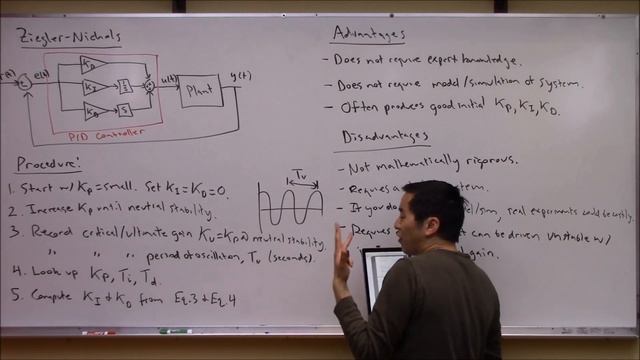 Ziegler-Nichols
r(t)
e(t)
K_P
K_I
K_D
S
u(t)
Plant
y(t)
PID Controller
Procedure:
1. Start w/ K_P = small. Set K_I = K_D = 0.
2. Increase K_P until neutral stability.
3. Record critical/ultimate gain K_U = K_P @ neutral stability.
" " period of oscillation, T_U (seconds).
4. Look up K_P, T_i, T_d.
5. Compute K_I & K_D from Eq.3 & Eq.4
T_U
Advantages
- Does not require expert knowledge.
- Does not require model/simulation of system.
- Often produces good initial K_P, K_I, K_D.
Disadvantages
- Not mathematically rigorous.
- Requires a system.
- If you do /sim, real experiments could be costly.
- Requires can be driven unstable w/
gain.